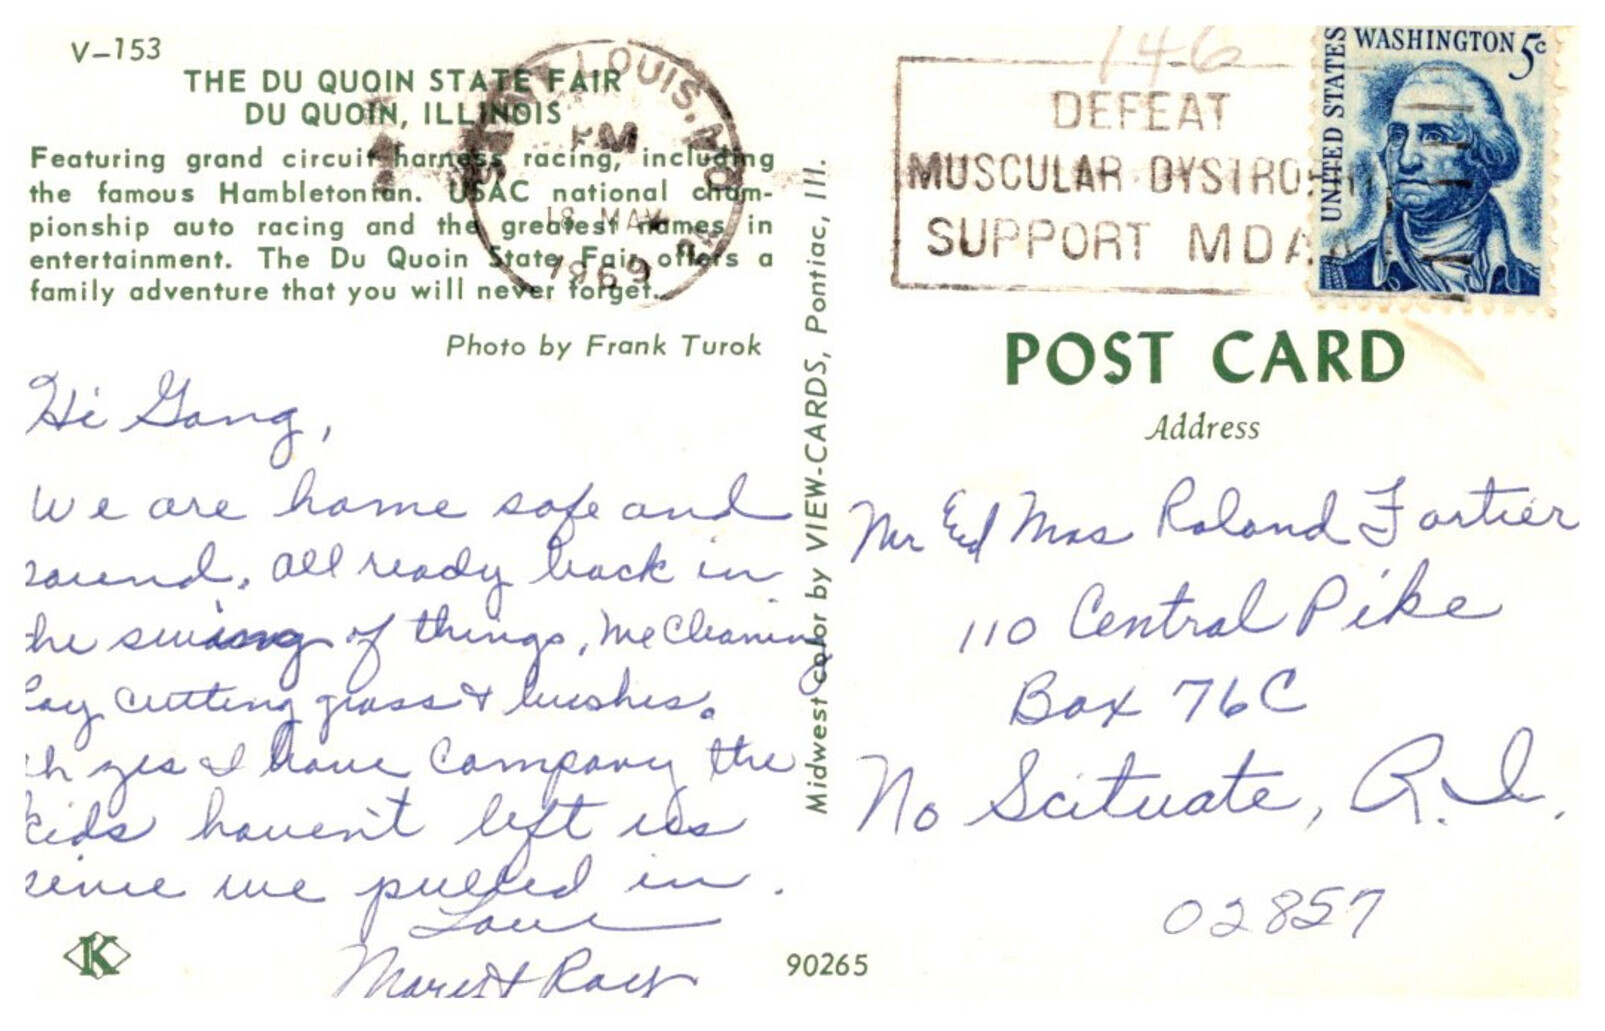 V-153
THE DU QUOIN STATE FAIR
DU QUOIN, ILLINOIS
Featuring grand circuit harness racing, including
the famous Hambletonian. USAC national cham-
pionship auto racing and the greatest names in
entertainment. The Du Quoin State Fair offers a
family adventure that you will never forget.
Photo by Frank Turok
Hi Gang,
We are home safe and
sound. All ready back in
the swing of things, Me Cleaning
Ray cutting grass & bushes.
Oh yes I have Company the
kids haven't left us
since we pulled in.
Love
Mary & Ray
K
90265
Midwest color by VIEW-CARDS, Pontiac, Ill.
SAINT LOUIS, MO
PM
18 MAY
1969
146
DEFEAT
MUSCULAR DYSTROPHY
SUPPORT MDAA
UNITED STATES
WASHINGTON 5c
POST CARD
Address
Mr Ed Mrs Roland Fortier
110 Central Pike
Box 76C
No Scituate, R.I.
02857